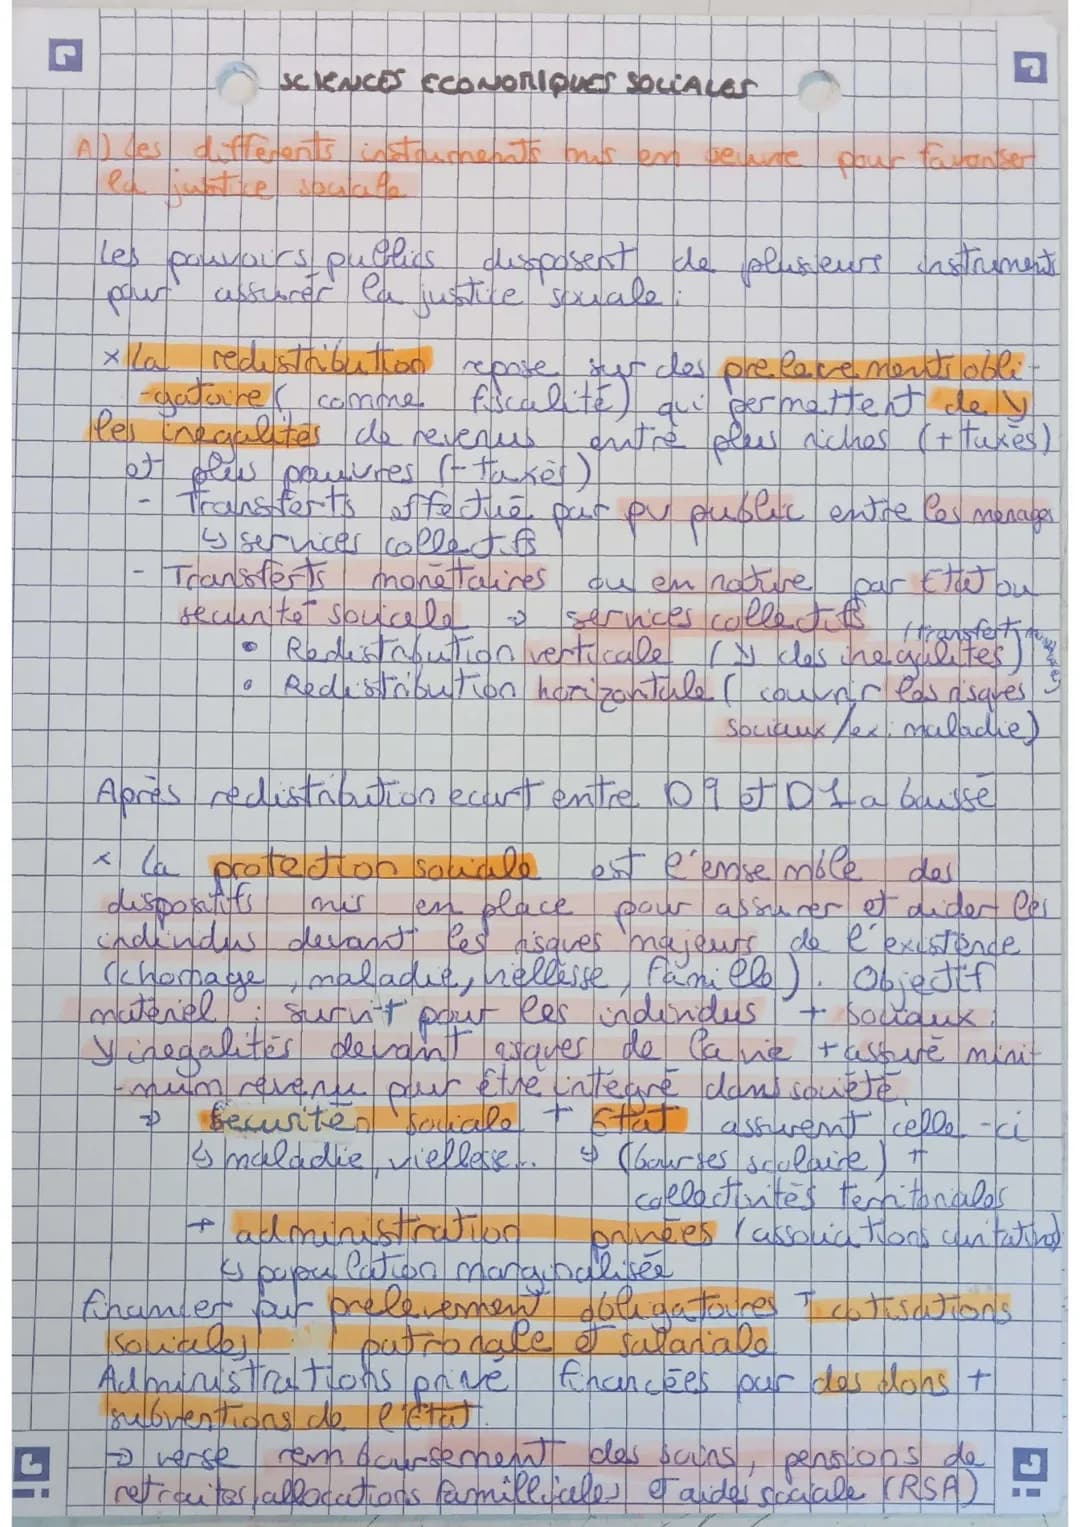 SCIENCES ECONOMIQUES SOCIALES
A) Les différents instruments mis en oeuvre pour favoriser
la justice sociale
Les pouvoirs publics disposent de plusieurs instruments
pour assurer la justice sociale :
x La redistribution repose sur des prelevements obli-
-gatoire ( comme fiscalité) qui permettent de ↘
les inegalités de revenus entre plus riches (+ taxés)
et plus pauvres (- taxés)
- Transferts effectué par pv public entre les menages
↳ services collectifs
- Transferts monétaires ou en nature par Etat ou
securité sociale → services collectifs
• Redistribution verticale (↘ des inegalités) (transfert
• Redistribution horizontale ( couvrir les risques
sociaux /ex : maladie)
Après redistribution ecart entre D9 et D1 a baissé
x La protection sociale est l'ensemble des
dispositifs mis en place pour assurer et aider les
individus devant les risques majeurs de l'existence
(chomage, maladie, viellesse, famille). Objectif
matériel : survit pour les individus + sociaux :
↘ inegalités devant risques de la vie + assuré mini-
-mum revenu pour être integré dans societé.
→ securité sociale + Etat assurent celle-ci
↳ maladie, viellesse... ↳ (bourses scolaire) +
collectivités territoriales
+ administration privées (associations caritatives)
↳ population marginalisée
financer par prelevement obligatoires + cotisations
sociales : patronale et salariale
Administrations privé financées par des dons +
subventions de l'Etat.
→ verse remboursement des soins, pensions de
retraites, allocations familliales et aides sociale (RSA)